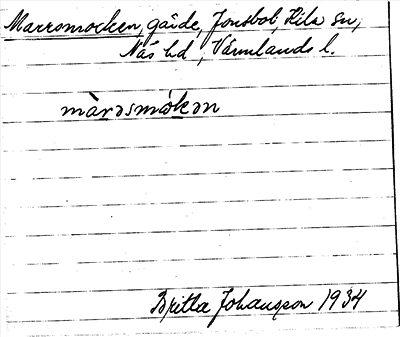 Marrsmocken, gärde, Jonsbol, Kila sn,
Näs hd, Värmlands l.
màrəsmòkən
Britta Johansson 1934